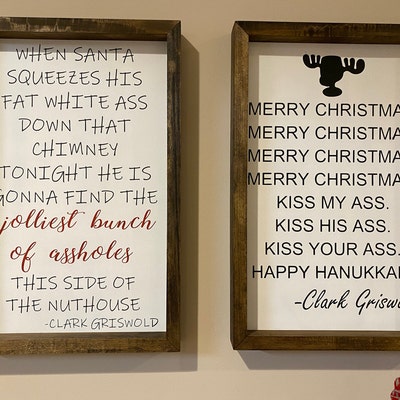 WHEN SANTA
SQUEEZES HIS
FAT WHITE ASS
DOWN THAT
CHIMNEY
TONIGHT HE IS
GONNA FIND THE
jolliest bunch
of assholes
THIS SIDE OF
THE NUTHOUSE
-CLARK GRISWOLD
MERRY CHRISTMA
MERRY CHRISTMA
MERRY CHRISTMA
MERRY CHRISTMA
KISS MY ASS.
KISS HIS ASS.
KISS YOUR ASS.
HAPPY HANUKKA
-Clark Griswo